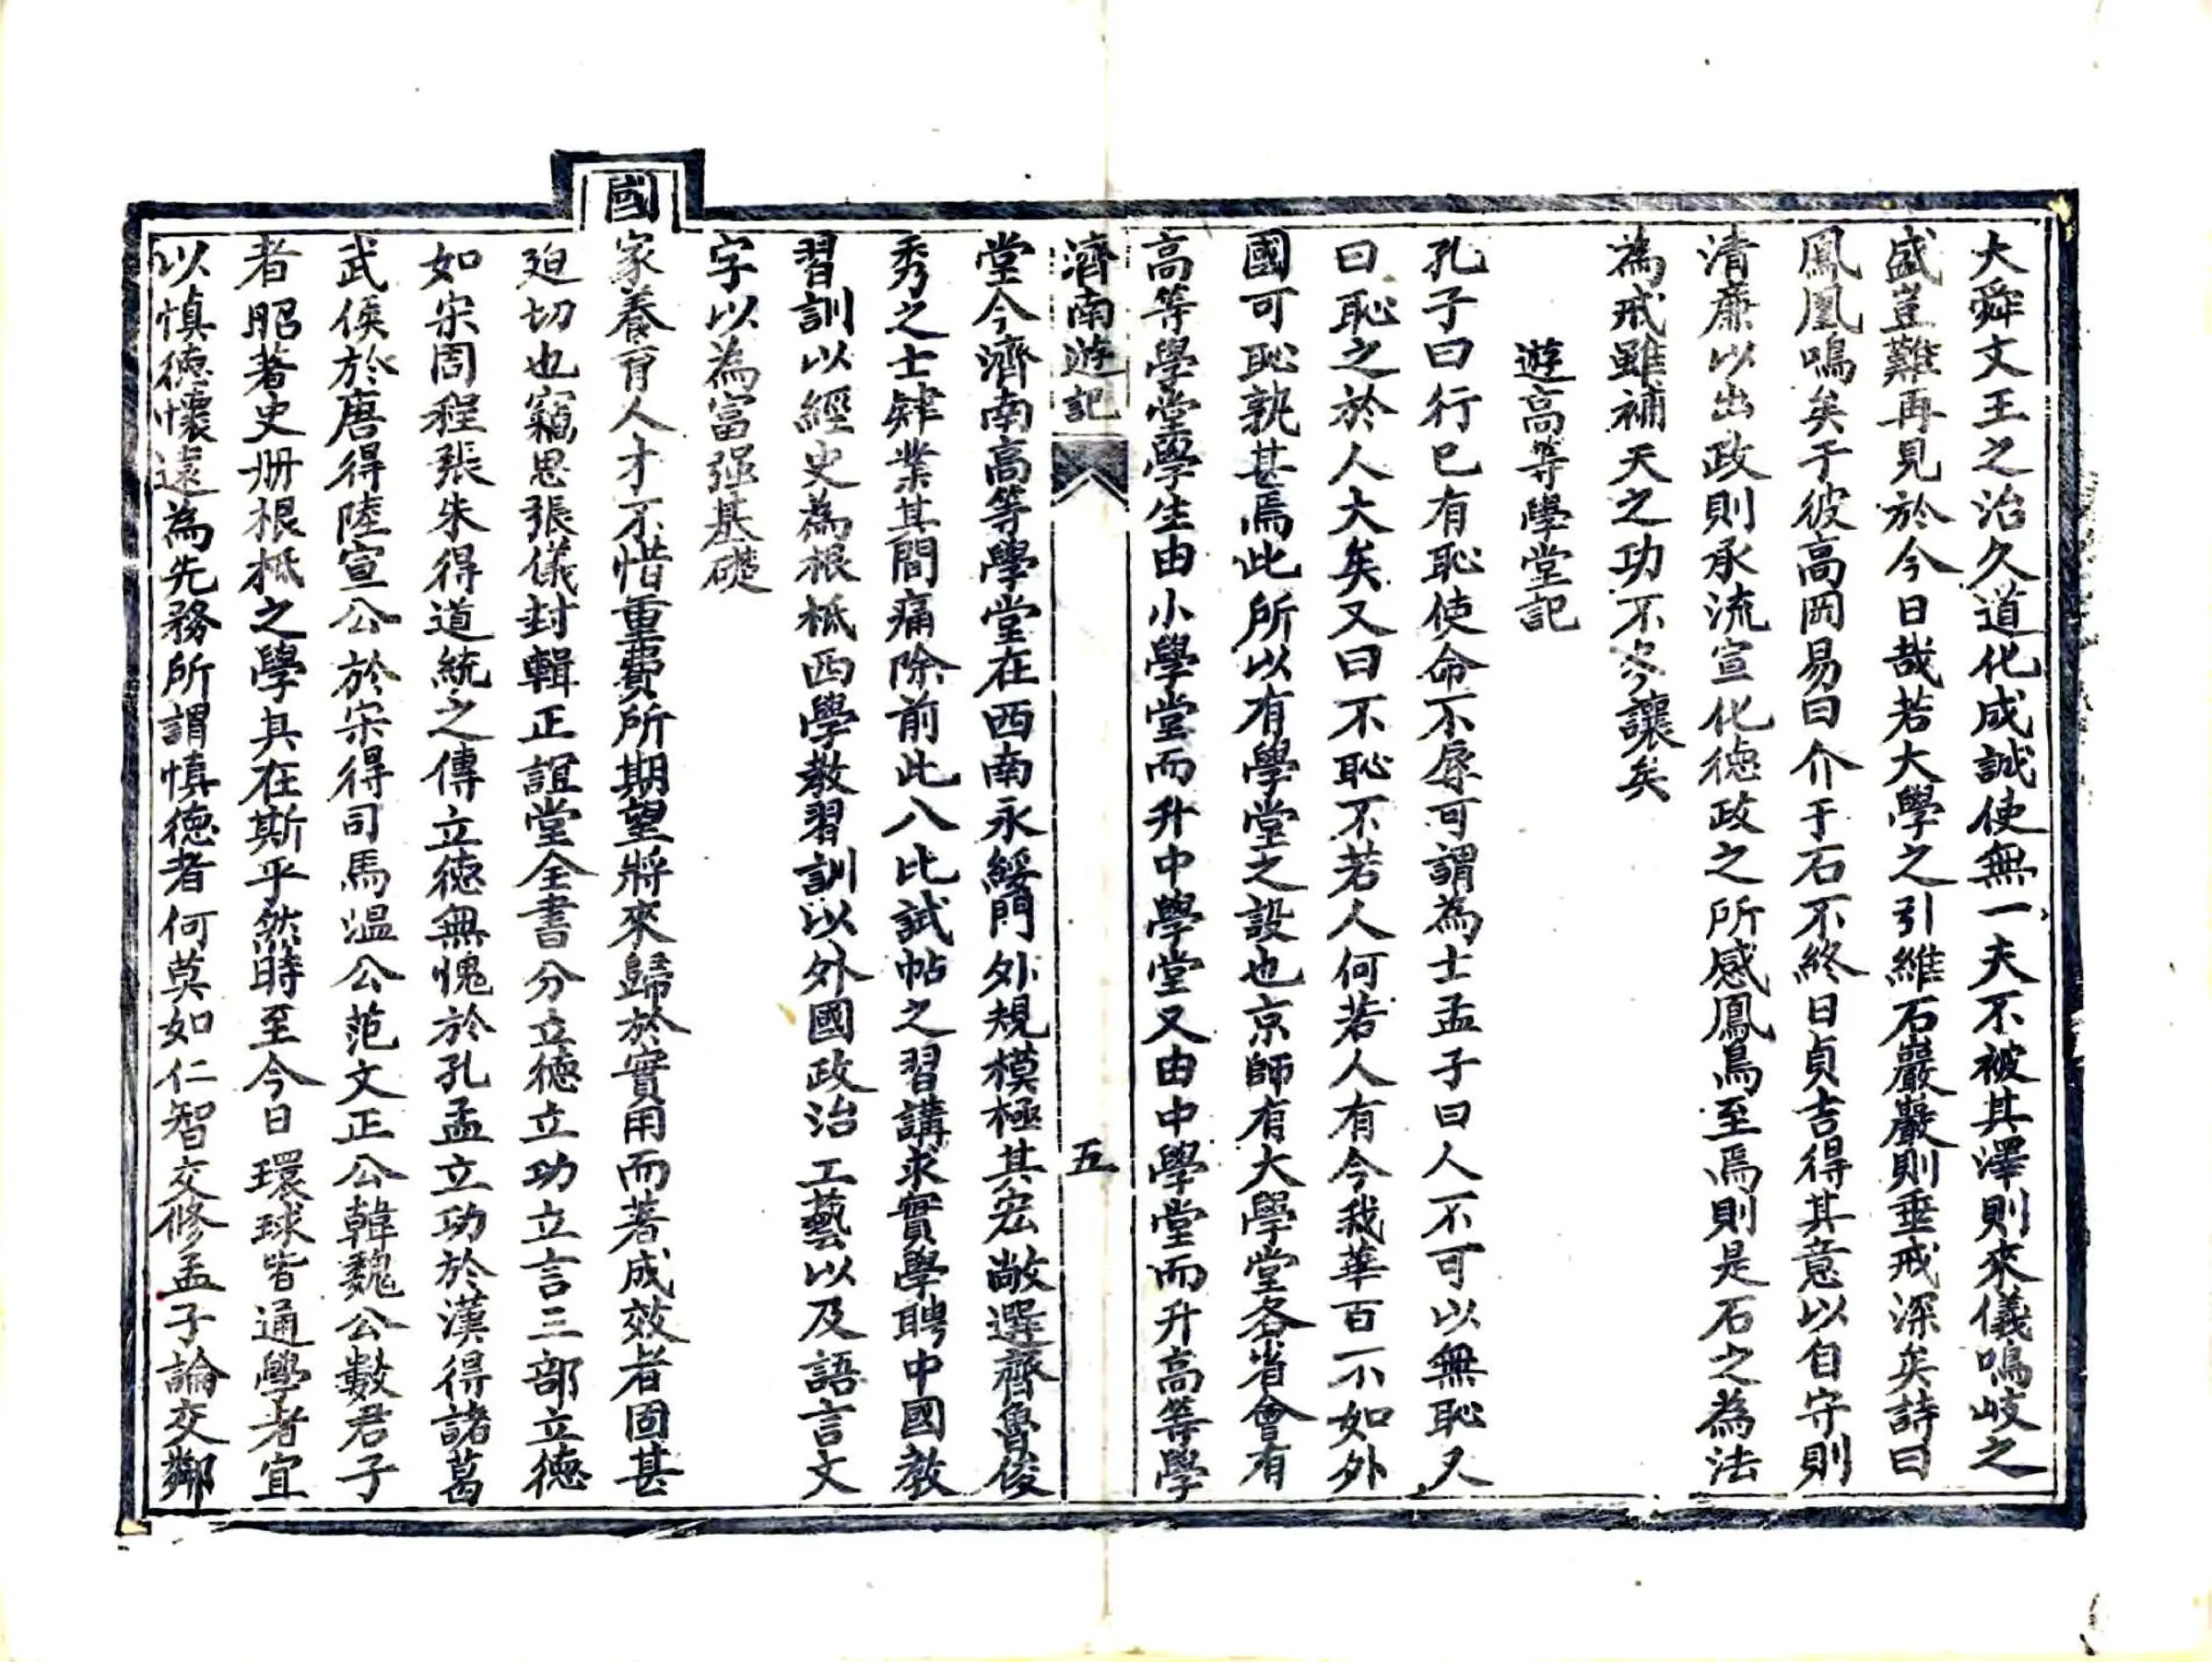 大舜文王之治久道化成誠使無一夫不被其澤則來儀鳴岐之
盛豈難再見於今日哉若大學之引維石巖巖則垂戒深矣詩曰
鳳凰鳴矣于彼高岡易曰介于石不終日貞吉得其意以自守則
清廉以出政則承流宣化德政之所感鳳鳥至焉則是石之為法
為戒雖補天之功不多讓矣
遊高等學堂記
孔子曰行己有恥使命不辱可謂為士孟子曰人不可以無恥又
曰恥之於人大矣又曰不恥不若人何若人有今我華百不如外
國可恥孰甚焉此所以有學堂之設也京師有大學堂各省會有
高等學堂學生由小學堂而升中學堂又由中學堂而升高等學
濟南遊記
五
堂今濟南高等學堂在西南永綏門外規模極其宏敞選齊魯俊
秀之士肄業其間痛除前此八比試帖之習講求實學聘中國教
習訓以經史為根柢西學教習訓以外國政治工藝以及語言文
字以為富强基礎
國家養育人才不惜重費所期望將來歸於實用而著成效者固甚
迫切也竊思張儀封輯正誼堂全書分立德立功立言三部立德
如宋周程張朱得道統之傳立德無愧於孔孟立功於漢得諸葛
武侯於唐得陸宣公於宋得司馬溫公范文正公韓魏公數君子
者昭著史册根柢之學具在斯乎然時至今日環球皆通學者宜
以慎德懷遠為先務所謂慎德者何莫如仁智交修孟子論交鄰